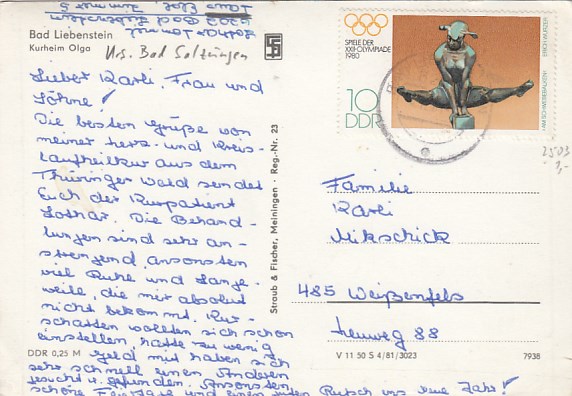 Bad Liebenstein
Kurheim Olga
Krs. Bad Salzungen
Lieber Karli, Frau und
Söhne!
Die besten Grüße von
meiner Herz- und Kreis-
laufheilkur aus dem
Thüringer Wald sendet
Euch der Kurpatient
Lothar. Die Behand-
lungen sind sehr an-
strengend, ansonsten
viel Ruhe und Lange-
weile, die mir absolut
nicht bekommt. Kur-
schatten wollten sich schon
einstellen, hatte zu wenig
Geld mit haben sich
sehr schnell einen Anderen
gesucht u. gefunden. Ansonsten
schöne Feiertage und einen guten Rutsch ins neue Jahr!
DDR 0,25 M
Straub & Fischer, Meiningen · Reg.-Nr. 23
SPIELE DER
XXII. OLYMPIADE
1980
10
DDR
AM SCHWEBEBALKEN
ERICH WURZER
2503
Familie
Karli
Mikschick
485 Weißenfels
Leuweg 88
V 11 50 S 4/81/3023
7938